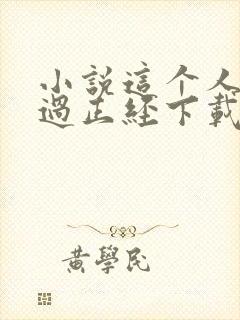 小説這个人
過正經下載
黃學民